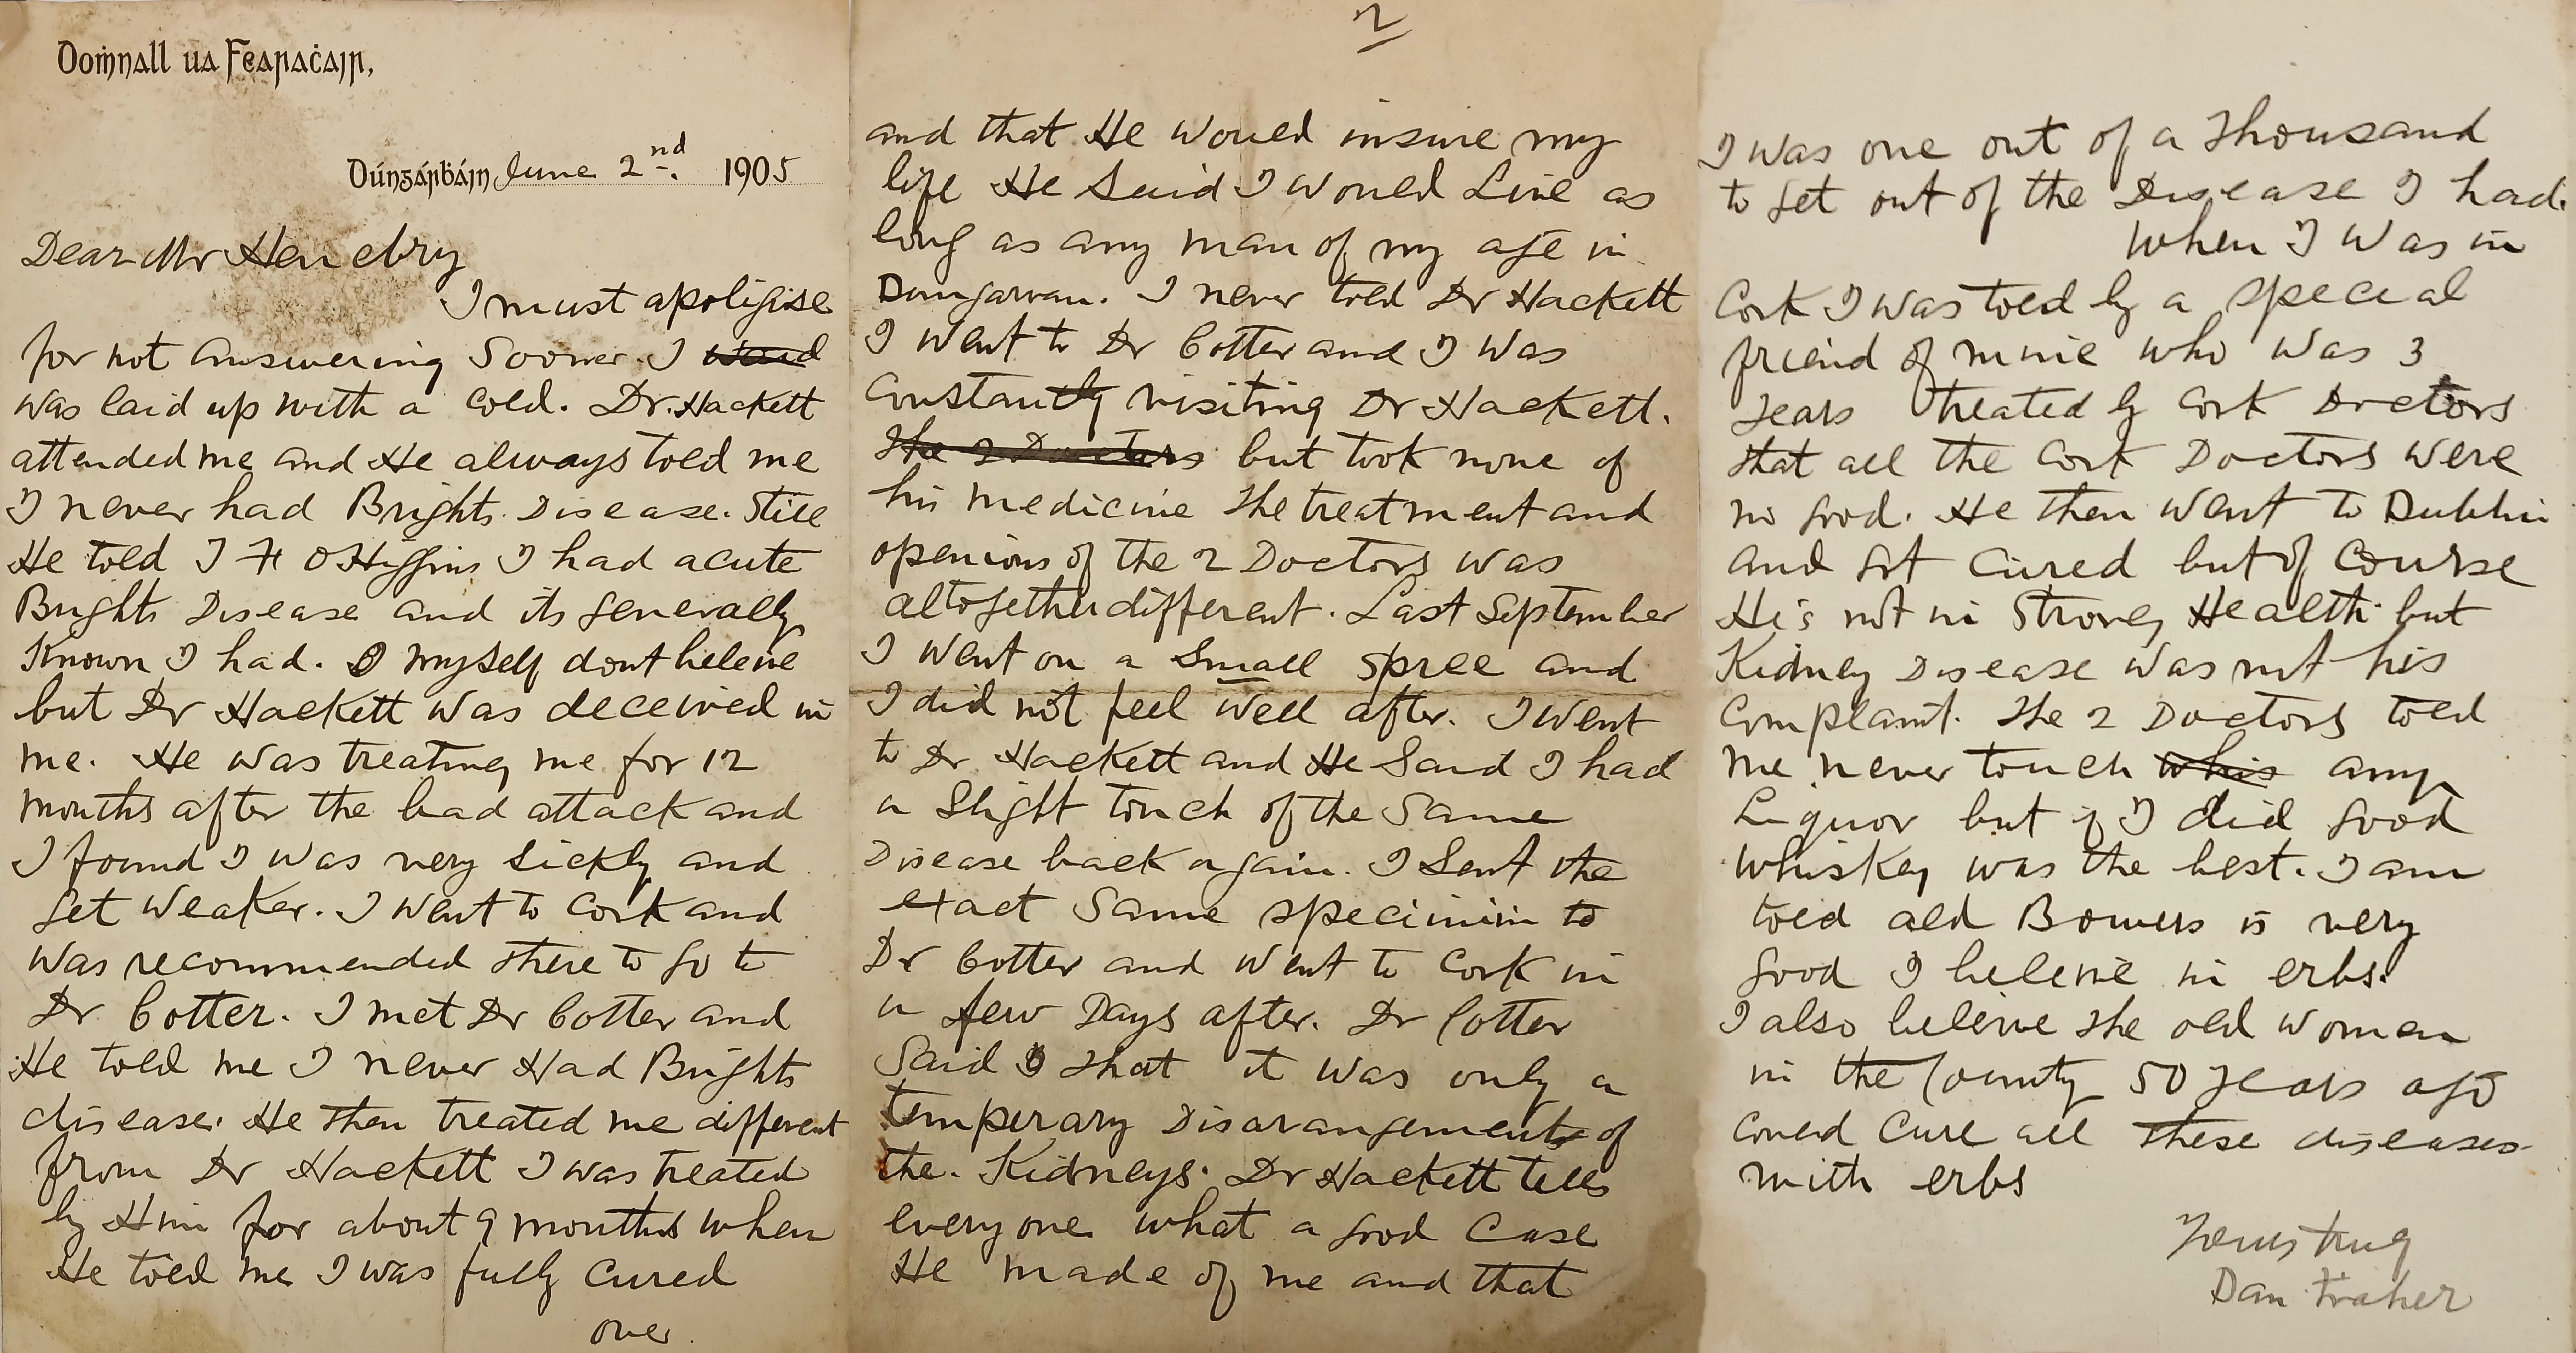 Doṁnall ua Fearaċair,
Dúngarbáin June 2nd. 1905
Dear Mr Henebry
I must apoligise
for not answering Sooner. I
was laid up with a cold. Dr. Hackett
attended me and He always told me
I never had Brights Disease. Still
He told J H O Higgins I had acute
Brights Disease and its generally
Known I had. I myself dont beleive
but Dr Hackett was deceived in
me. He was treating me for 12
months after the bad attack and
I found I was very sickly and
get weaker. I went to Cork and
was recommended there to go to
Dr Cotter. I met Dr Cotter and
He told me I never Had Brights
disease. He then treated me different
from Dr Hackett I was treated
by Him for about 9 months when
He told me I was fully cured
over.
2
and that He would insure my
life He Said I would Live as
long as any man of my age in
Dungarvan. I never told Dr Hackett
I went to Dr Cotter and I was
Constantly visiting Dr Hackett.
The 2 Doctors but took none of
his medicine The treatment and
openions of the 2 Doctors was
altogether different. Last September
I went on a Small spree and
I did not feel well after. I went
to Dr Hackett and He Said I had
a Slight touch of the Same
Disease back again. I Sent the
exact Same specimin to
Dr Cotter and went to Cork in
a few Days after. Dr Cotter
Said that it was only a
temperary Disarangement of
the. Kidneys. Dr Hackett tells
everyone what a good Case
He made of me and that
I was one out of a Thousand
to get out of the Disease I had.
When I was in
Cork I was told by a special
friend of mine who was 3
years treated by Cork Doctors
that all the Cork Doctors were
no good. He then went to Dublin
and got Cured but of Course
He's not in Strong Health but
Kidney Disease was not his
Complaint. The 2 Doctors told
me never touch whis any
Liquor but if I did good
whiskey was the best. I am
told old Bowers is very
good I beleive in erbs.
I also beleive the old women
in the County 50 years ago
could Cure all these diseases
with erbs
Yours truly
Dan Fraher